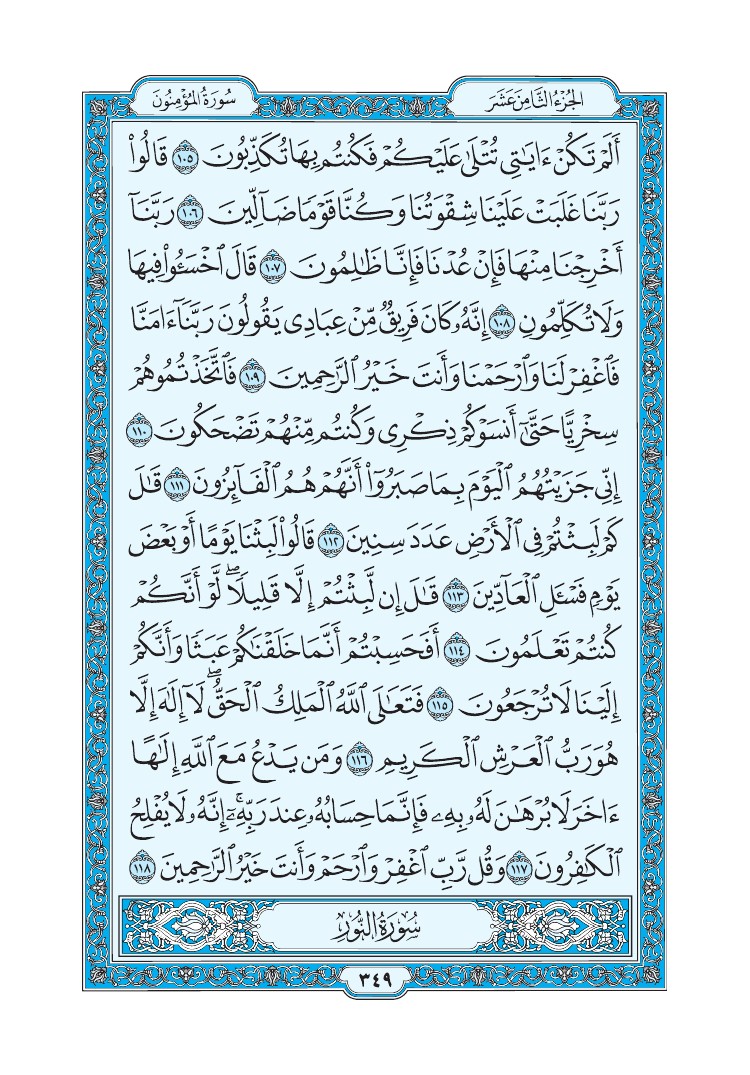 سُورَةُ المُؤْمِنُونَ
الجُزْءُ الثَّامِنَ عَشَرَ
أَلَمۡ تَكُنۡ ءَايَٰتِي تُتۡلَىٰ عَلَيۡكُمۡ فَكُنتُم بِهَا تُكَذِّبُونَ ١٠٥ قَالُواْ
رَبَّنَا غَلَبَتۡ عَلَيۡنَا شِقۡوَتُنَا وَكُنَّا قَوۡمٗا ضَآلِّينَ ١٠٦ رَبَّنَآ
أَخۡرِجۡنَا مِنۡهَا فَإِنۡ عُدۡنَا فَإِنَّا ظَٰلِمُونَ ١٠٧ قَالَ ٱخۡسَـُٔواْ فِيهَا
وَلَا تُكَلِّمُونِ ١٠٨ إِنَّهُۥ كَانَ فَرِيقٞ مِّنۡ عِبَادِي يَقُولُونَ رَبَّنَآ ءَامَنَّا
فَٱغۡفِرۡ لَنَا وَٱرۡحَمۡنَا وَأَنتَ خَيۡرُ ٱلرَّٰحِمِينَ ١٠٩ فَٱتَّخَذۡتُمُوهُمۡ
سِخۡرِيًّا حَتَّىٰٓ أَنسَوۡكُمۡ ذِكۡرِي وَكُنتُم مِّنۡهُمۡ تَضۡحَكُونَ ١١٠
إِنِّي جَزَيۡتُهُمُ ٱلۡيَوۡمَ بِمَا صَبَرُوٓاْ أَنَّهُمۡ هُمُ ٱلۡفَآئِزُونَ ١١١ قَٰلَ
كَمۡ لَبِثۡتُمۡ فِي ٱلۡأَرۡضِ عَدَدَ سِنِينَ ١١٢ قَالُواْ لَبِثۡنَا يَوۡمًا أَوۡ بَعۡضَ
يَوۡمٖ فَسۡـَٔلِ ٱلۡعَآدِّينَ ١١٣ قَٰلَ إِن لَّبِثۡتُمۡ إِلَّا قَلِيلٗاۖ لَّوۡ أَنَّكُمۡ
كُنتُمۡ تَعۡلَمُونَ ١١٤ أَفَحَسِبۡتُمۡ أَنَّمَا خَلَقۡنَٰكُمۡ عَبَثٗا وَأَنَّكُمۡ
إِلَيۡنَا لَا تُرۡجَعُونَ ١١٥ فَتَعَٰلَى ٱللَّهُ ٱلۡمَلِكُ ٱلۡحَقُّۖ لَآ إِلَٰهَ إِلَّا
هُوَ رَبُّ ٱلۡعَرۡشِ ٱلۡكَرِيمِ ١١٦ وَمَن يَدۡعُ مَعَ ٱللَّهِ إِلَٰهًا
ءَاخَرَ لَا بُرۡهَٰنَ لَهُۥ بِهِۦ فَإِنَّمَا حِسَابُهُۥ عِندَ رَبِّهِۦٓۚ إِنَّهُۥ لَا يُفۡلِحُ
ٱلۡكَٰفِرُونَ ١١٧ وَقُل رَّبِّ ٱغۡفِرۡ وَٱرۡحَمۡ وَأَنتَ خَيۡرُ ٱلرَّٰحِمِينَ ١١٨
سُورَةُ النُّورِ
٣٤٩